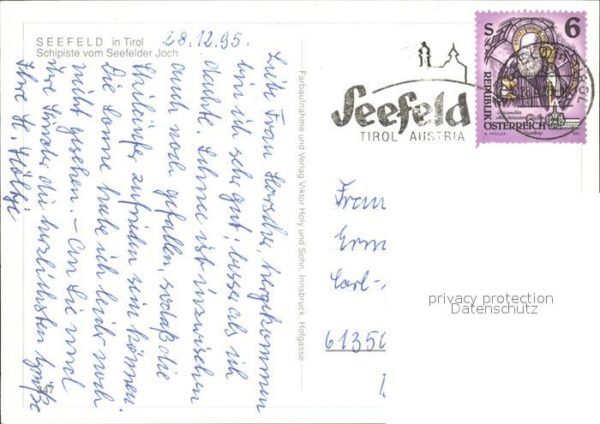 SEEFELD in Tirol
Schipiste vom Seefelder Joch
28.12.95.
Liebe Frau
bin ich sehr gut, besser als ich
dachte. Schnee ist inzwischen
auch noch gefallen, sodaß die
Skiläufer zufrieden sein können.
Die Sonne habe ich leider noch
nicht gesehen. - An Sie und
Ihre die herzlichsten Grüße
Ihre H.
447
Farbaufnahme und Verlag Viktor Holy und Sohn, Innsbruck, Hofgasse
Seefeld
TIROL AUSTRIA
S 6
REPUBLIK
ÖSTERREICH
Frau
Erm
Carl-
6135
privacy protection
Datenschutz